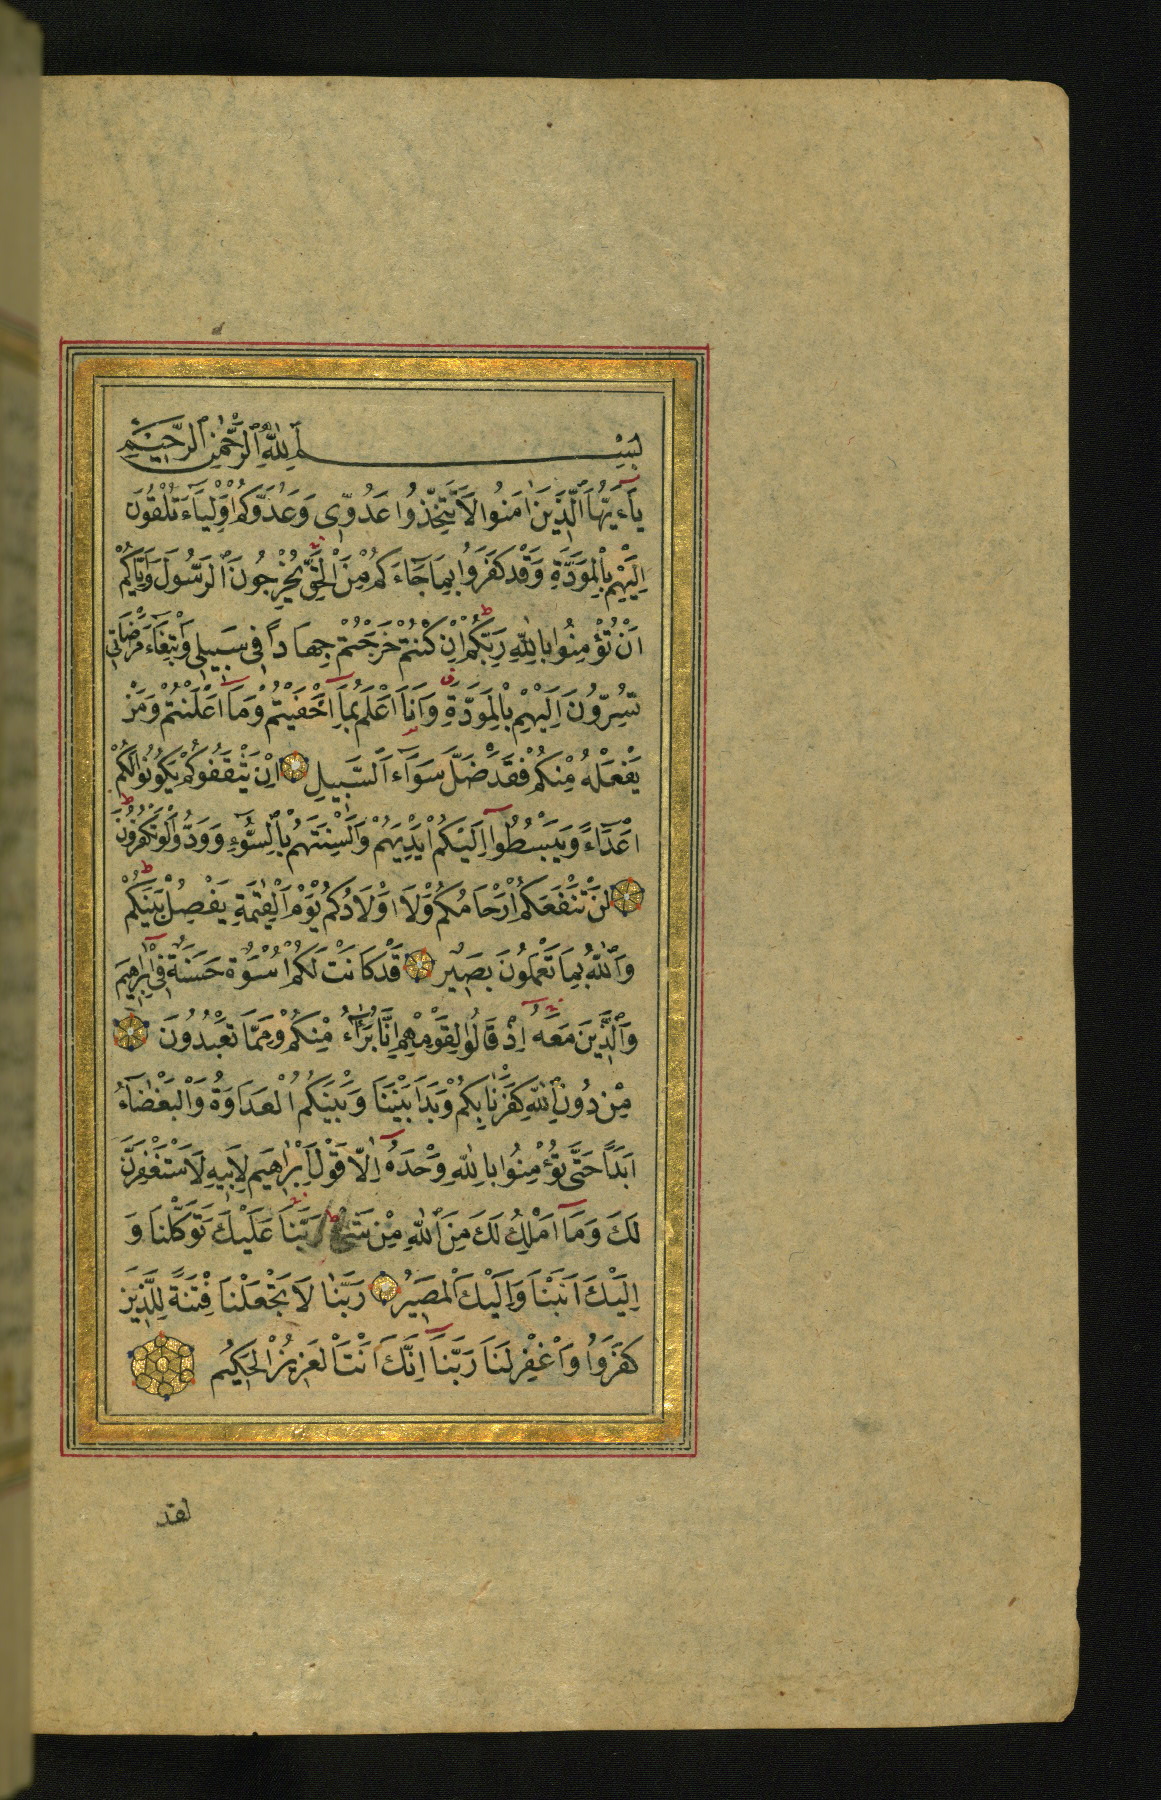 بِسْمِ ٱللّٰهِ ٱلرَّحْمٰنِ ٱلرَّحِيمِ
يَاءَيُّهَا ٱلَّذِينَ اٰمَنُوا لَا تَتَّخِذُوا عَدُوِّى وَعَدُوَّكُمْ اَوْلِيَاءَ تُلْقُونَ
اِلَيْهِمْ بِالْمَوَدَّةِ وَقَدْ كَفَرُوا بِمَا جَاءَكُمْ مِنَ الْحَقِّ يُخْرِجُونَ ٱلرَّسُولَ وَاِيَّاكُمْ
اَنْ تُؤْمِنُوا بِاللّٰهِ رَبِّكُمْ اِنْ كُنْتُمْ خَرَجْتُمْ جِهَادًا فِى سَبِيلِى وَابْتِغَاءَ مَرْضَاتِى
تُسِرُّونَ اِلَيْهِمْ بِالْمَوَدَّةِ وَاَنَا اَعْلَمُ بِمَا اَخْفَيْتُمْ وَمَا اَعْلَنْتُمْ وَمَنْ
يَفْعَلْهُ مِنْكُمْ فَقَدْ ضَلَّ سَوَاءَ ٱلسَّبِيلِ اِنْ يَثْقَفُوكُمْ يَكُونُوا لَكُمْ
اَعْدَاءً وَيَبْسُطُوا اِلَيْكُمْ اَيْدِيَهُمْ وَاَلْسِنَتَهُمْ بِالسُّوءِ وَوَدُّوا لَوْ تَكْفُرُونَ
لَنْ تَنْفَعَكُمْ اَرْحَامُكُمْ وَلَا اَوْلَادُكُمْ يَوْمَ الْقِيٰمَةِ يَفْصِلُ بَيْنَكُمْ
وَٱللّٰهُ بِمَا تَعْمَلُونَ بَصِيرٌ قَدْ كَانَتْ لَكُمْ اُسْوَةٌ حَسَنَةٌ فِى اِبْرٰهِيمَ
وَٱلَّذِينَ مَعَهُ اِذْ قَالُوا لِقَوْمِهِمْ اِنَّا بُرَءٰٓؤُا مِنْكُمْ وَمِمَّا تَعْبُدُونَ
مِنْ دُونِ ٱللّٰهِ كَفَرْنَا بِكُمْ وَبَدَا بَيْنَنَا وَبَيْنَكُمُ الْعَدَاوَةُ وَالْبَغْضَاءُ
اَبَدًا حَتّٰى تُؤْمِنُوا بِاللّٰهِ وَحْدَهُ اِلَّا قَوْلَ اِبْرٰهِيمَ لِاَبِيهِ لَاَسْتَغْفِرَنَّ
لَكَ وَمَا اَمْلِكُ لَكَ مِنَ ٱللّٰهِ مِنْ شَىْءٍ رَبَّنَا عَلَيْكَ تَوَكَّلْنَا وَ
اِلَيْكَ اَنَبْنَا وَاِلَيْكَ الْمَصِيرُ رَبَّنَا لَا تَجْعَلْنَا فِتْنَةً لِلَّذِينَ
كَفَرُوا وَاغْفِرْ لَنَا رَبَّنَا اِنَّكَ اَنْتَ الْعَزِيزُ الْحَكِيمُ
لقد